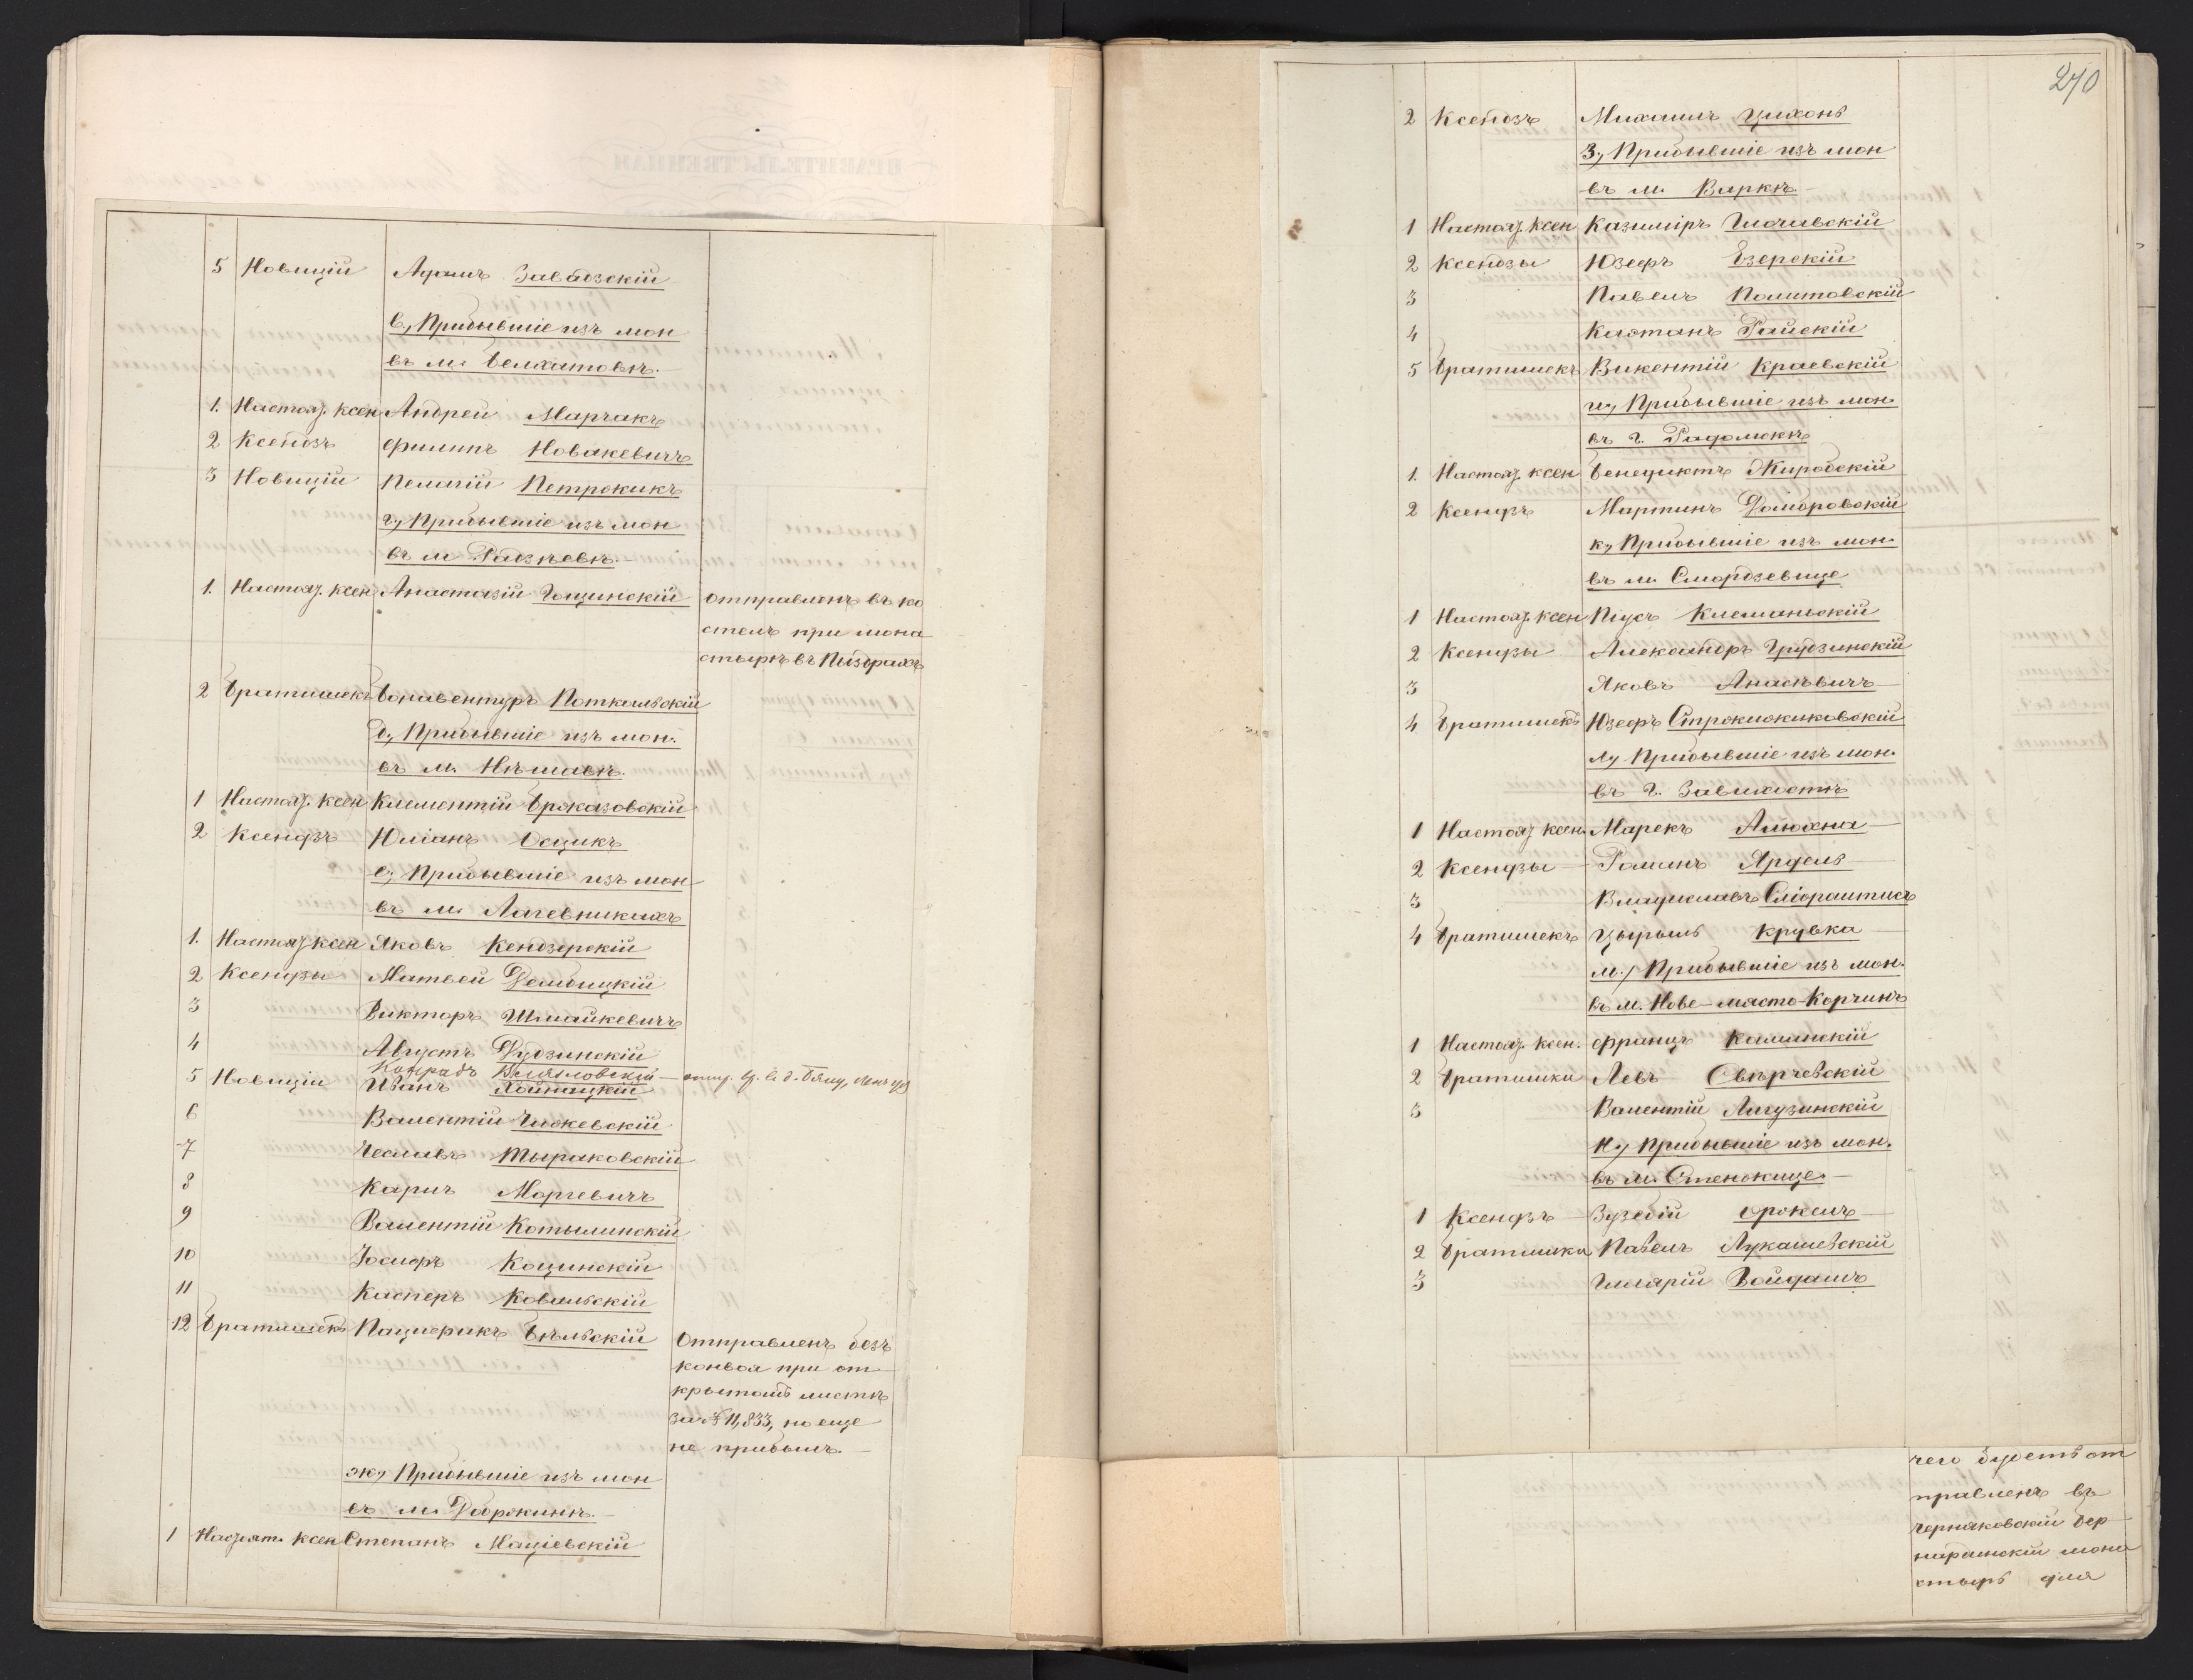 5 Новицій Адамъ Завадзскій
в, Прибывшіе изъ мон
въ м. Белхатовѣ.
1. Настоящ. ксен Андрей Марчакъ
2 Ксендзъ Филипъ Новакевичъ
3 Новицій Пелагій Петрокикъ
г, Прибывшіе изъ мон
въ м Радзѣевѣ.
1. Настоящ. ксен Анастазій Гощинскій отправленъ въ ко
стелъ при мона
стырѣ въ Пыздрахъ
2 Братишекъ Бонавентуръ Поткальскій
д, Прибывшіе изъ мон.
въ м. Нѣшавѣ.
1 Настоящ. ксен Клементій Бржазовскій
2 Ксендзъ Юліанъ Осцикъ
е, Прибывшіе изъ мон
въ м. Лагевникахъ
1. Настоящ ксен Яковъ Кендзерскій
2 Ксендзы Матвей Дембицкій
3 Викторъ Шмайкевичъ
4 Августъ Дудзинскій
Конрадъ
5 Новиціи Иванъ Хойнацкій
6 Валентій Чижевскій
7 Чеславъ Тыраковскій
8 Каролъ Моргевичъ
9 Валентій Котылинскій
10 Іосифъ Коцинскій
11 Касперъ Ковальскій
12 Братишекъ Пацификъ Бѣльскій Отправленъ безъ
конвоя при от
крытомъ листѣ
за № 11,833, но еще
не прибылъ.
ж, Прибывшіе изъ мон
въ м. Добржинѣ.
1 Настоят. ксен Степанъ Маціевскій
270
2 Ксендзъ Михаилъ Цихонь
З, Прибывшіе изъ мон
въ м. Варкѣ.
1 Настоящ. ксен Казиміръ
2 Ксендзы Юзефъ Езерскій
3 Павелъ Политовскій
4 Каэтанъ Райскій
5 Братишекъ Викентій Краевскій
и, Прибывшіе изъ мон.
въ г. Радомскѣ
1. Настоящ. ксен Бенедиктъ Жировскій
2 Ксендзъ Мартинъ Домбровскій
к, Прибывшіе изъ мон.
въ м. Смордзевице
1 Настоящ. ксен Піусъ Клеманьскій
2 Ксендзы Александръ Грудзинскій
3 Яковъ Анасѣвичъ
4 Братишекъ Юзефъ
л, Прибывшіе изъ мон.
въ г. Завихостѣ
1 Настоящ ксен. Марекъ Алюхна
2 Ксендзы Романъ Ярдель
3 Владиславъ
4 Братишекъ Цырыль Крувка
м., Прибывшіе изъ мон.
въ м. Нове-място-Корчинъ
1 Настоящ. ксен. Францъ Калинскій
2 Братишки Левъ Свѣрчевскій
3 Валентій Лигузинскій
н, Прибывшіе изъ мон.
въ м. Стенжице.
1 Ксендзъ Эузебій Фрокелъ
2 Братишки Павелъ Лукашевскій
3 Гиларій Войдашъ
чего будетъ от
правленъ въ
Черняковскій Бер
нардинскій мона
стырь для